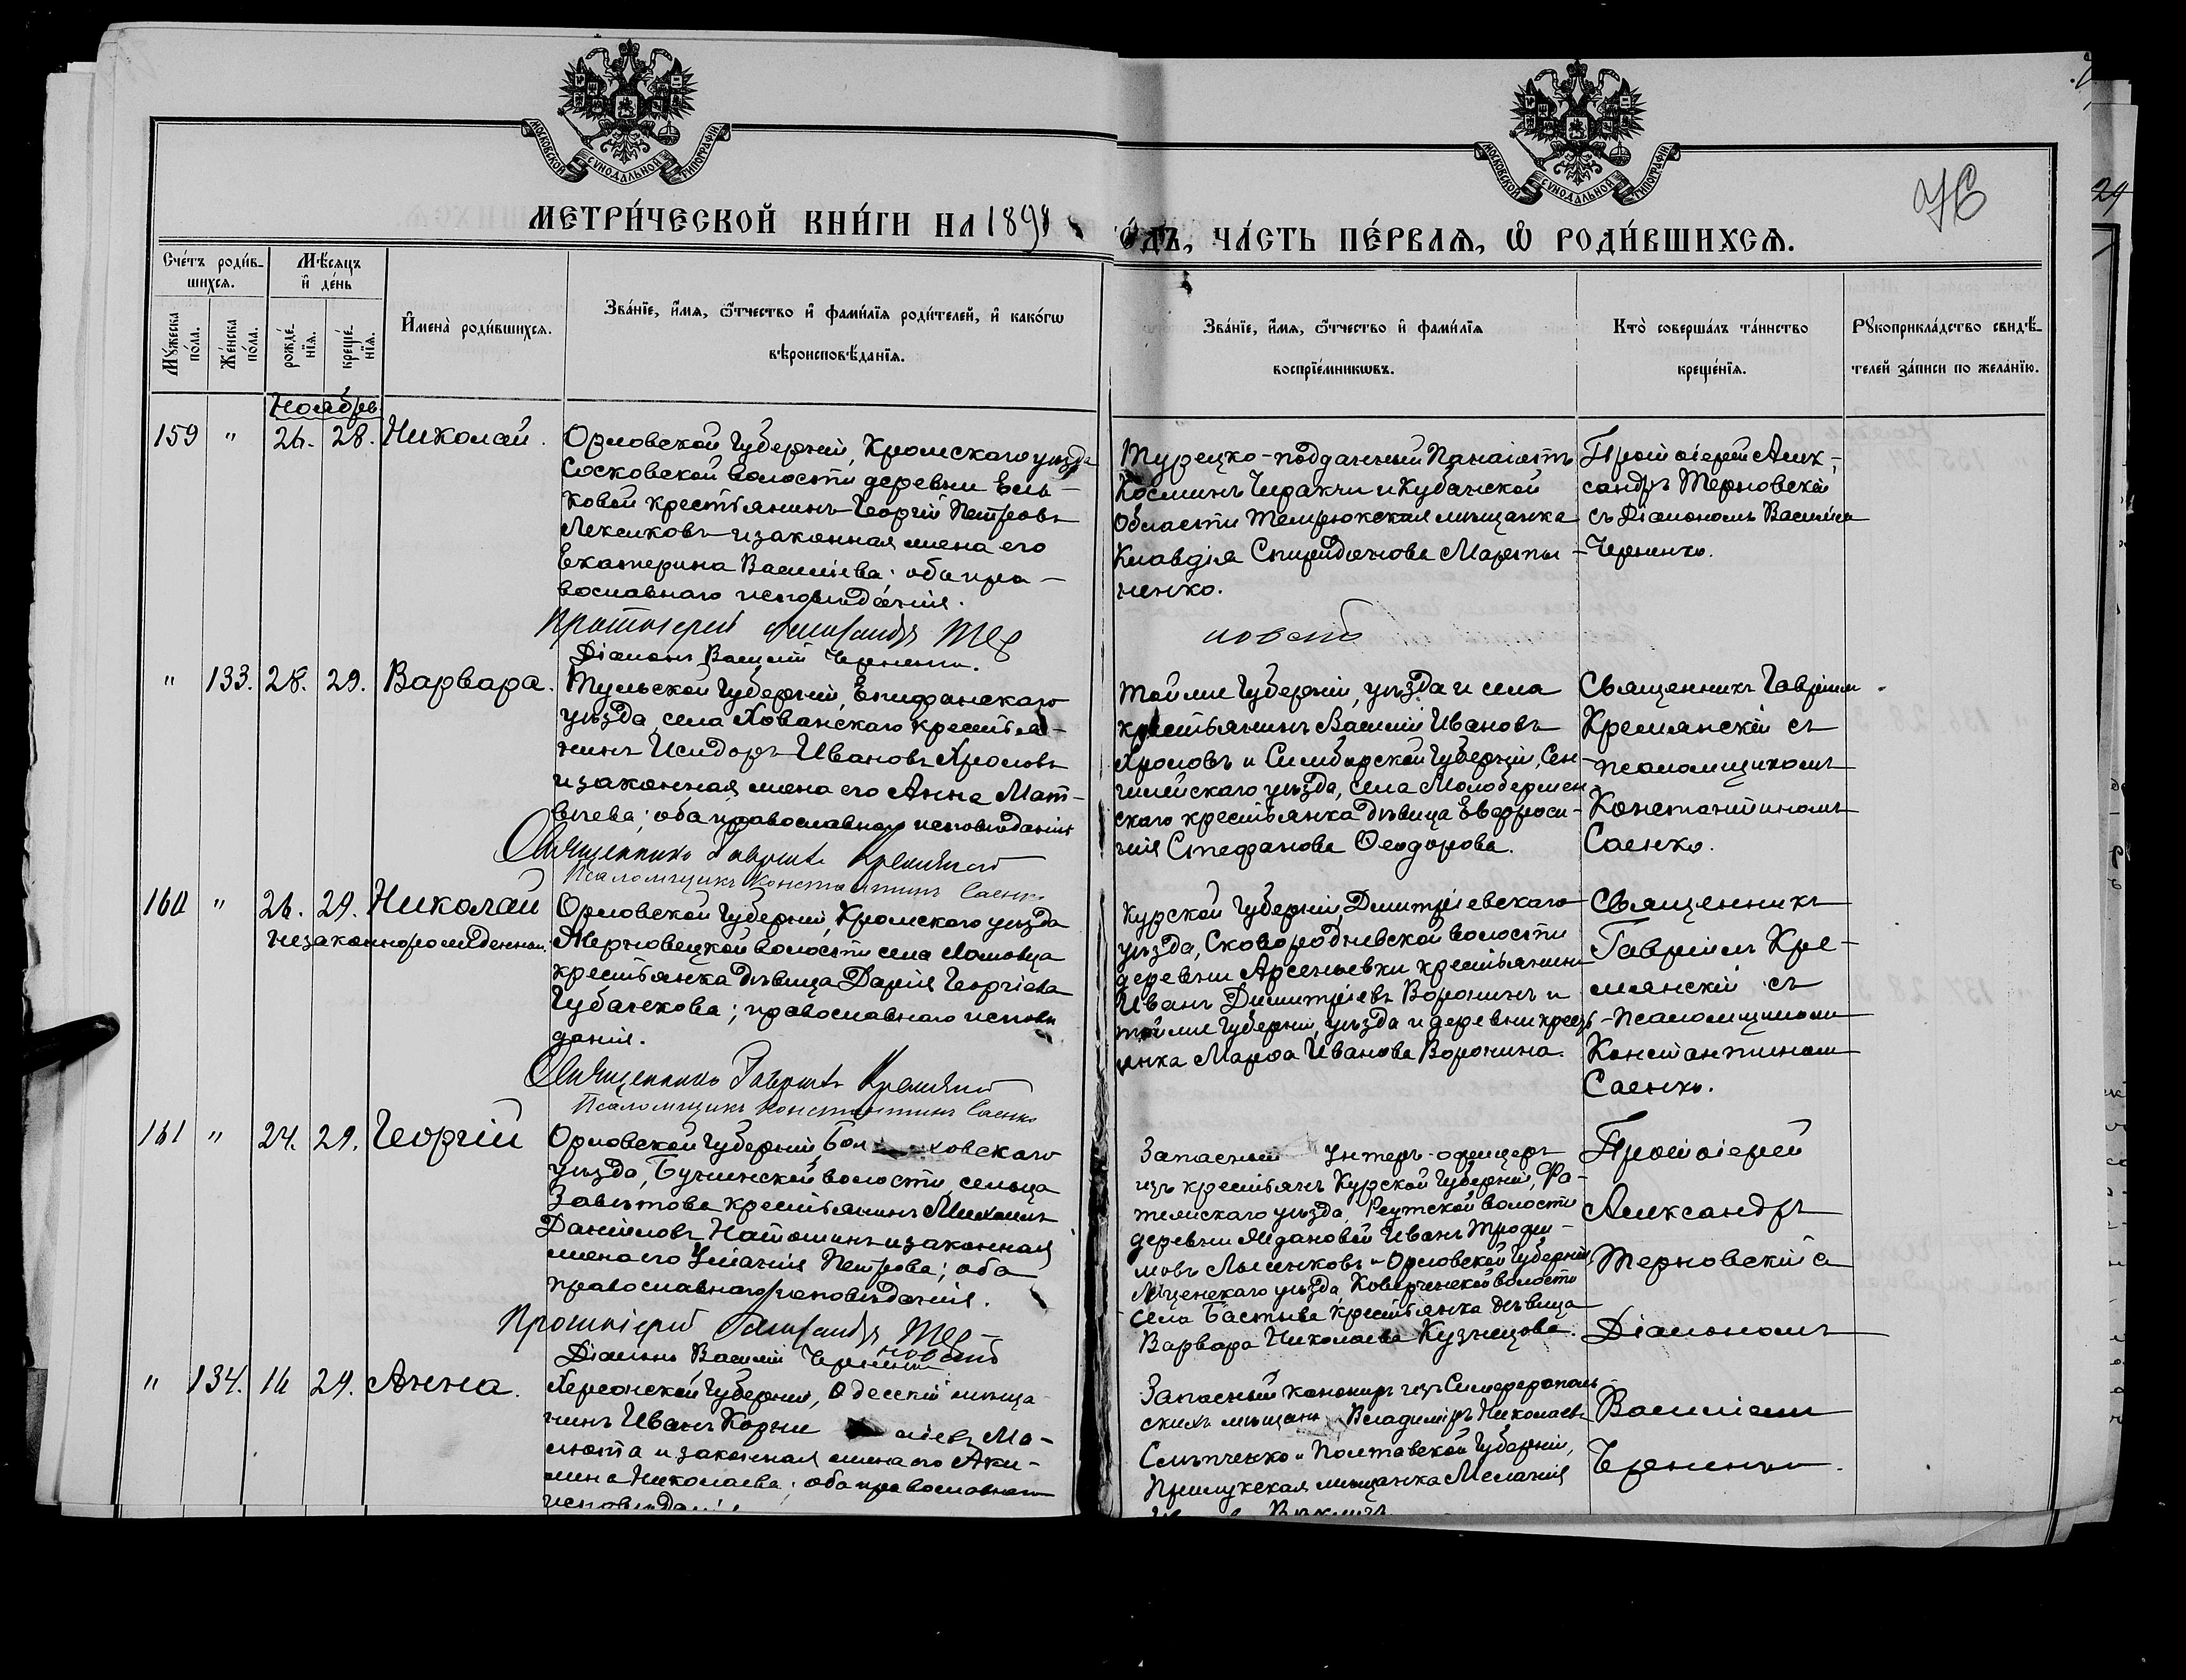 МОСКОВСКОЙ СѴНОДАЛЬНОЙ ТИПОГРАФІИ.
МОСКОВСКОЙ СѴНОДАЛЬНОЙ ТИПОГРАФІИ.
МЕТРИ́ЧЕСКОЙ КНИ́ГИ НА 1898
ОДЪ, ЧА́СТЬ ПЕ́РВАѦ, Ѡ҆ РОДИ́ВШИХСѦ.
29
Сче́тъ роди́в-
шихсѧ.
Мꙋ́жеска
по́ла.
Же́нска
по́ла.
Мѣ́сѧцъ
и҆ де́нь
рожде́-
нїѧ.
креще́-
нїѧ.
И҆мена̀ роди́вшихсѧ.
Зва́нїе, и҆́мѧ, ѻ҆́тчество и҆ фами́лїѧ роди́телей, и҆ како́гѡ
вѣроисповѣ́данїѧ.
Зва́нїе, и҆́мѧ, ѻ҆́тчество и҆ фами́лїѧ
воспрїе́мникѡвъ.
Кто̀ соверша́лъ та́инство
креще́нїѧ.
Рꙋкоприкла́дство свидѣ́-
телей за́писи по жела́нїю.
Ноябрь
159 " 26. 28. Николай.
Орловской Губерніи, Кромскаго уѣзда
Сосковской волости деревни Ель-
ковой крестьянинъ Георгій Петровъ
Лексиковъ и законная жена его
Екатерина Васильева; оба пра-
вославнаго исповѣданія.
Протоіерей Александръ Тер
новскій
Діаконъ Василій Черненко.
Турецко-подданный Панаіотъ
Косминъ Чиракчи и Кубанской
Области Темрюкская мѣщанка
Клавдія Спиридонова Марты-
ненко.
Протоіерей Алек-
сандръ Терновскій
съ Діакономъ Василіемъ
Черненко.
" 133. 28. 29. Варвара.
Тульской Губерніи, Епифанскаго
уѣзда, села Хованскаго крестья-
нинъ Исидоръ Ивановъ Хромовъ
и законная жена его Анна Мат-
вѣева; оба православнаго исповѣданія
Священникъ Гавріилъ Кремянскій
Псаломщикъ Константинъ Саенко
Той же Губерніи, уѣзда и села
крестьянинъ Василій Ивановъ
Хромовъ и Симбирской Губерніи, Сен-
гилейскаго уѣзда, села
скаго крестьянка дѣвица Евфроси-
нія Стефанова Ѳеодорова.
Священникъ Гавріилъ
Кремянскій съ
псаломщикомъ
Константиномъ
Саенко.
160 " 26. 29. Николай
незаконнорожденный.
Орловской Губерніи, Кромскаго уѣзда
Жерновецкой волости села Ломовца
крестьянка дѣвица Дарія Георгіева
Губанкова; православнаго исповѣ
данія.
Священникъ Гавріилъ Кремянскій
Псаломщикъ Константинъ Саенко
Курской Губерніи, Димитріевскаго
уѣзда, Сковородневской волости
деревни Арсеньевки крестьянинъ
Иванъ Димитріевъ Воронинъ и
той же Губерніи, уѣзда и деревни кресть-
янка Марѳа Иванова Воронина.
Священникъ
Гавріилъ Кре-
мянскій съ
псаломщикомъ
Константиномъ
Саенко.
161 " 24. 29. Георгій
Орловской Губерніи, Бол ховскаго
уѣзда, Бучинской волости, сельца
Завѣтова крестьянинъ Михаилъ
Даніиловъ Натошинъ и законная
жена его Уліанія Петрова; оба
православнаго исповѣданія.
Протоіерей Александръ Тер-
новскій
Діаконъ Василій Черненко
Запасный Унтеръ-офицеръ
изъ крестьянъ Курской Губерніи, Фа-
тежскаго уѣзда, Реутской волости
деревни Ждановой Иванъ Трофи-
мовъ Лысенковъ и Орловской Губерніи,
Мценскаго уѣзда, волости
села Бастыева крестьянка дѣвица
Варвара Николаева Кузнецова.
Протоіерей
Александръ
Терновскій съ
Діакономъ
" 134. 16 29. Анна.
Херсонской Губерніи, Одесскій мѣща-
нинъ Иванъ Корни ліевъ Ма-
люта и законная жена его Аки-
лина Николаева; оба православнаго
исповѣданія
Запасный канониръ изъ Симферополь-
скихъ мѣщанъ Владиміръ Николаевъ
Слѣпченко и Полтавской Губерніи,
Прилукская мѣщанка Меланія
Василіемъ
Черненко.